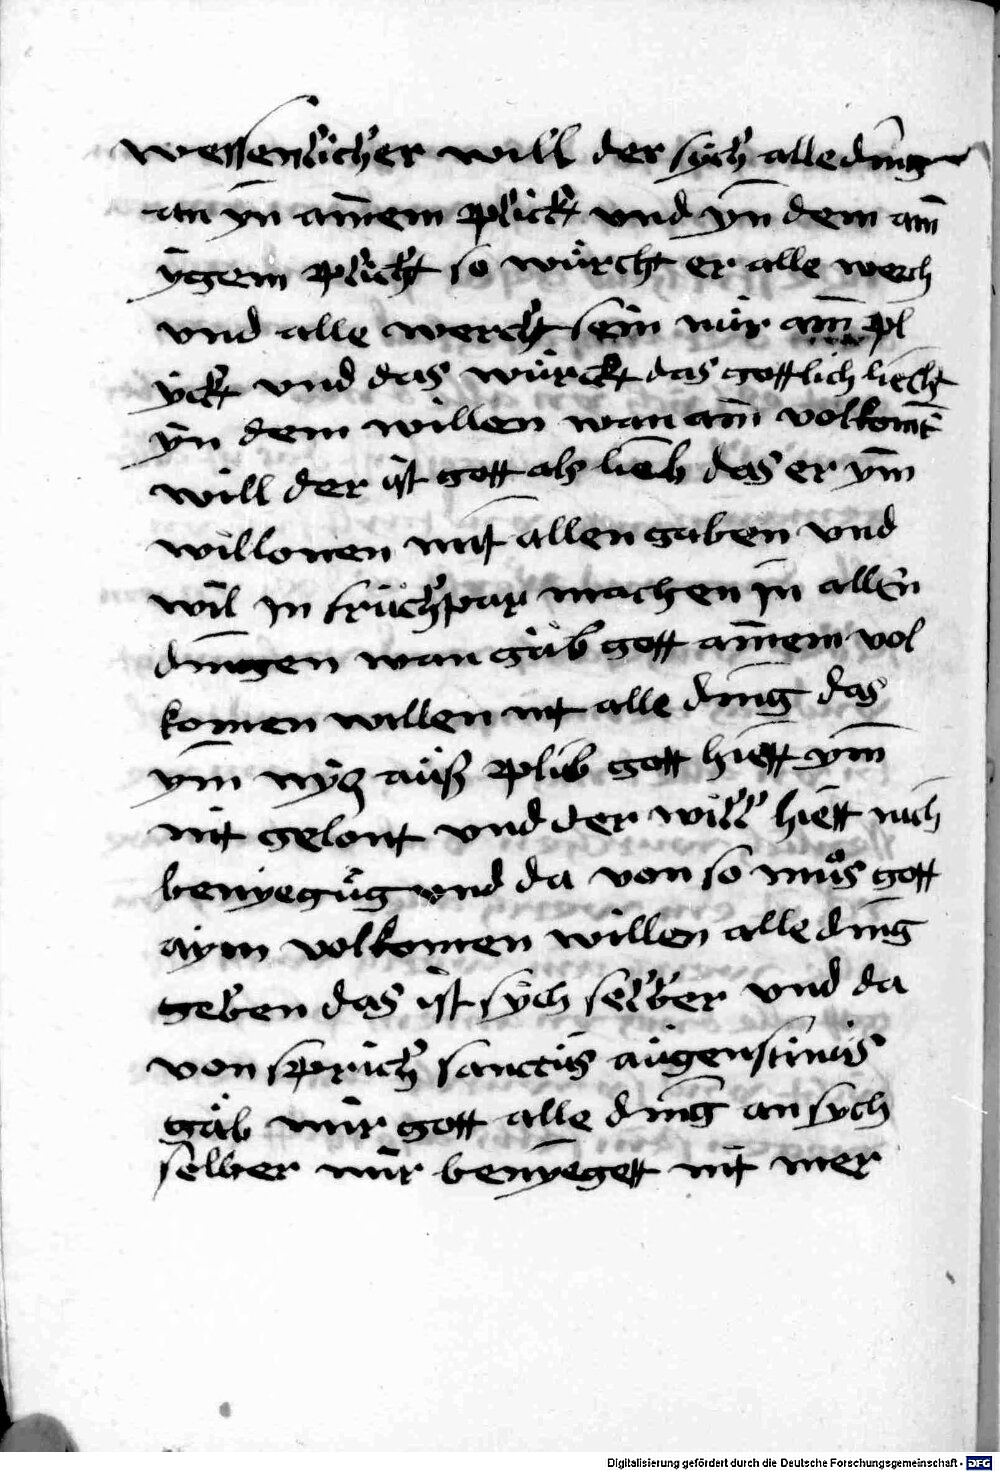 wessenlicher will der sych alle ding
an yn amem plick und yn dem am
ygem plicht so würcht er alle werch
vnd alle werch sein nür am pl
yck vnd das würckt das gottlich liecht
yn dem willen wan am volkomē
will der ist gott als lieb das er ym
will onen mit allen gaben vnd
wil in früchpar machen in allen
dingen wan gäb gott amem vol
komen willen nit alle ding das
ym nyg auß plib gott hiett ym
nit gelont vnd der will hiett nich
benyegüg vnd da von so müs gott
aym volkomen willen alle ding
geben das ist sych selber vnd da
von sprich sanctus augenstinus
gäb mir gott alle ding an sych
selber mir benyegett nit mer
Digitalisierung gefördert durch die Deutsche Forschungsgemeinschaft - DFG